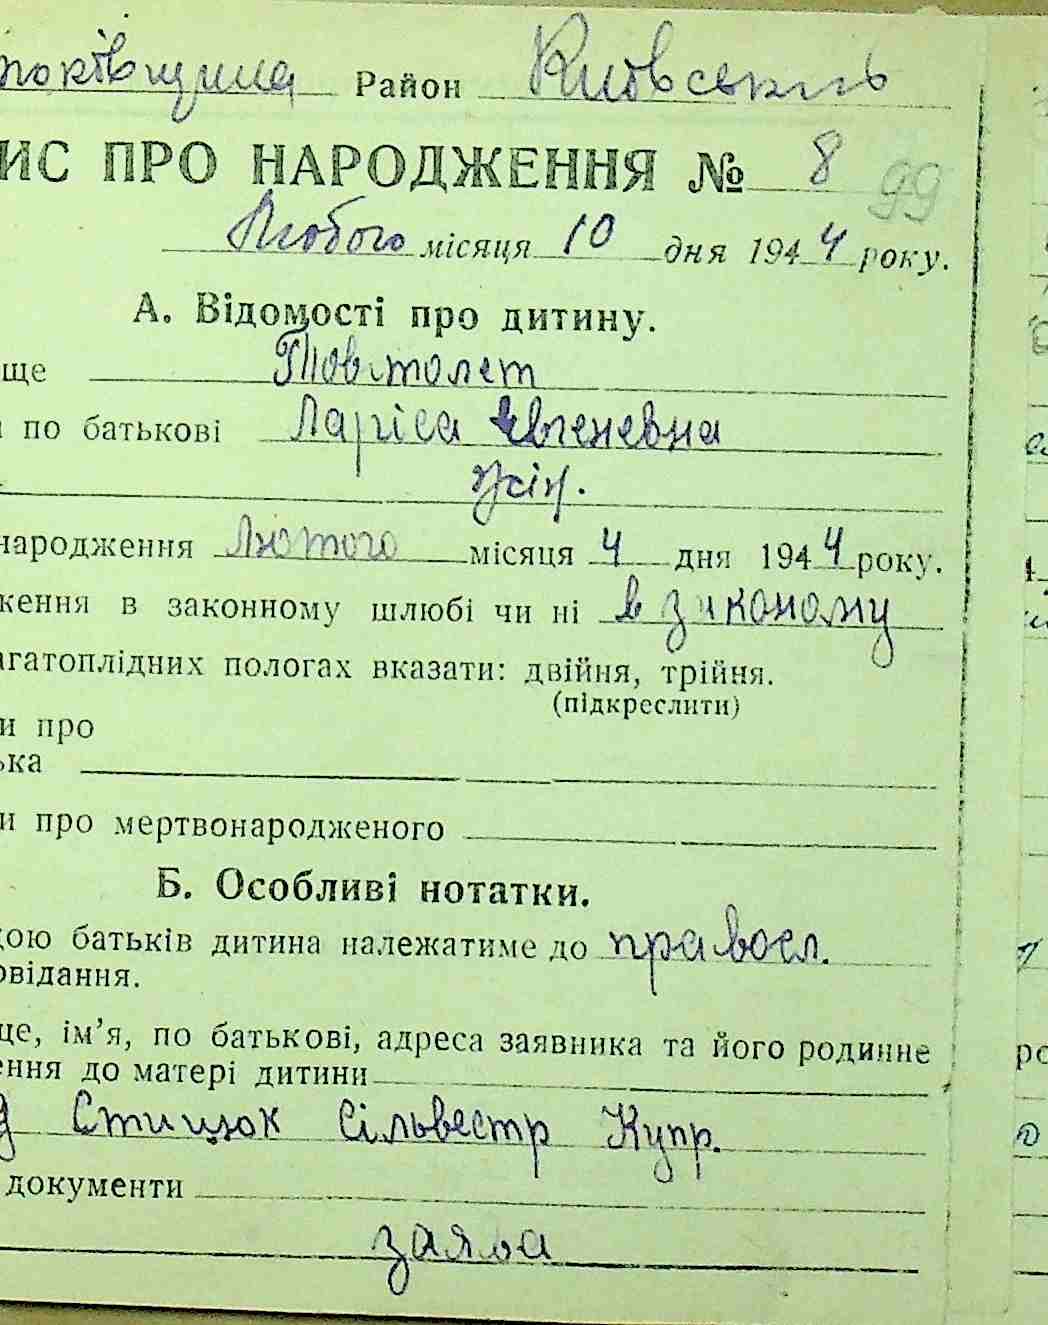 Район Київський
ИС ПРО НАРОДЖЕННЯ № 8 99
Лютого місяця 10 дня 1944 року.
А. Відомості про дитину.
ще Товстолет
по батькові Ларіса Євгеневна
жін.
народження Лютого місяця 4 дня 1944 року.
ження в законному шлюбі чи ні в законому
агатоплідних пологах вказати: двійня, трійня.
(підкреслити)
и про
ька
и про мертвонародженого
Б. Особливі нотатки.
дою батьків дитина належатиме до правосл.
овідання.
ще, ім’я, по батькові, адреса заявника та його родинне
ення до матері дитини
Сільвестр Купр.
документи
заява